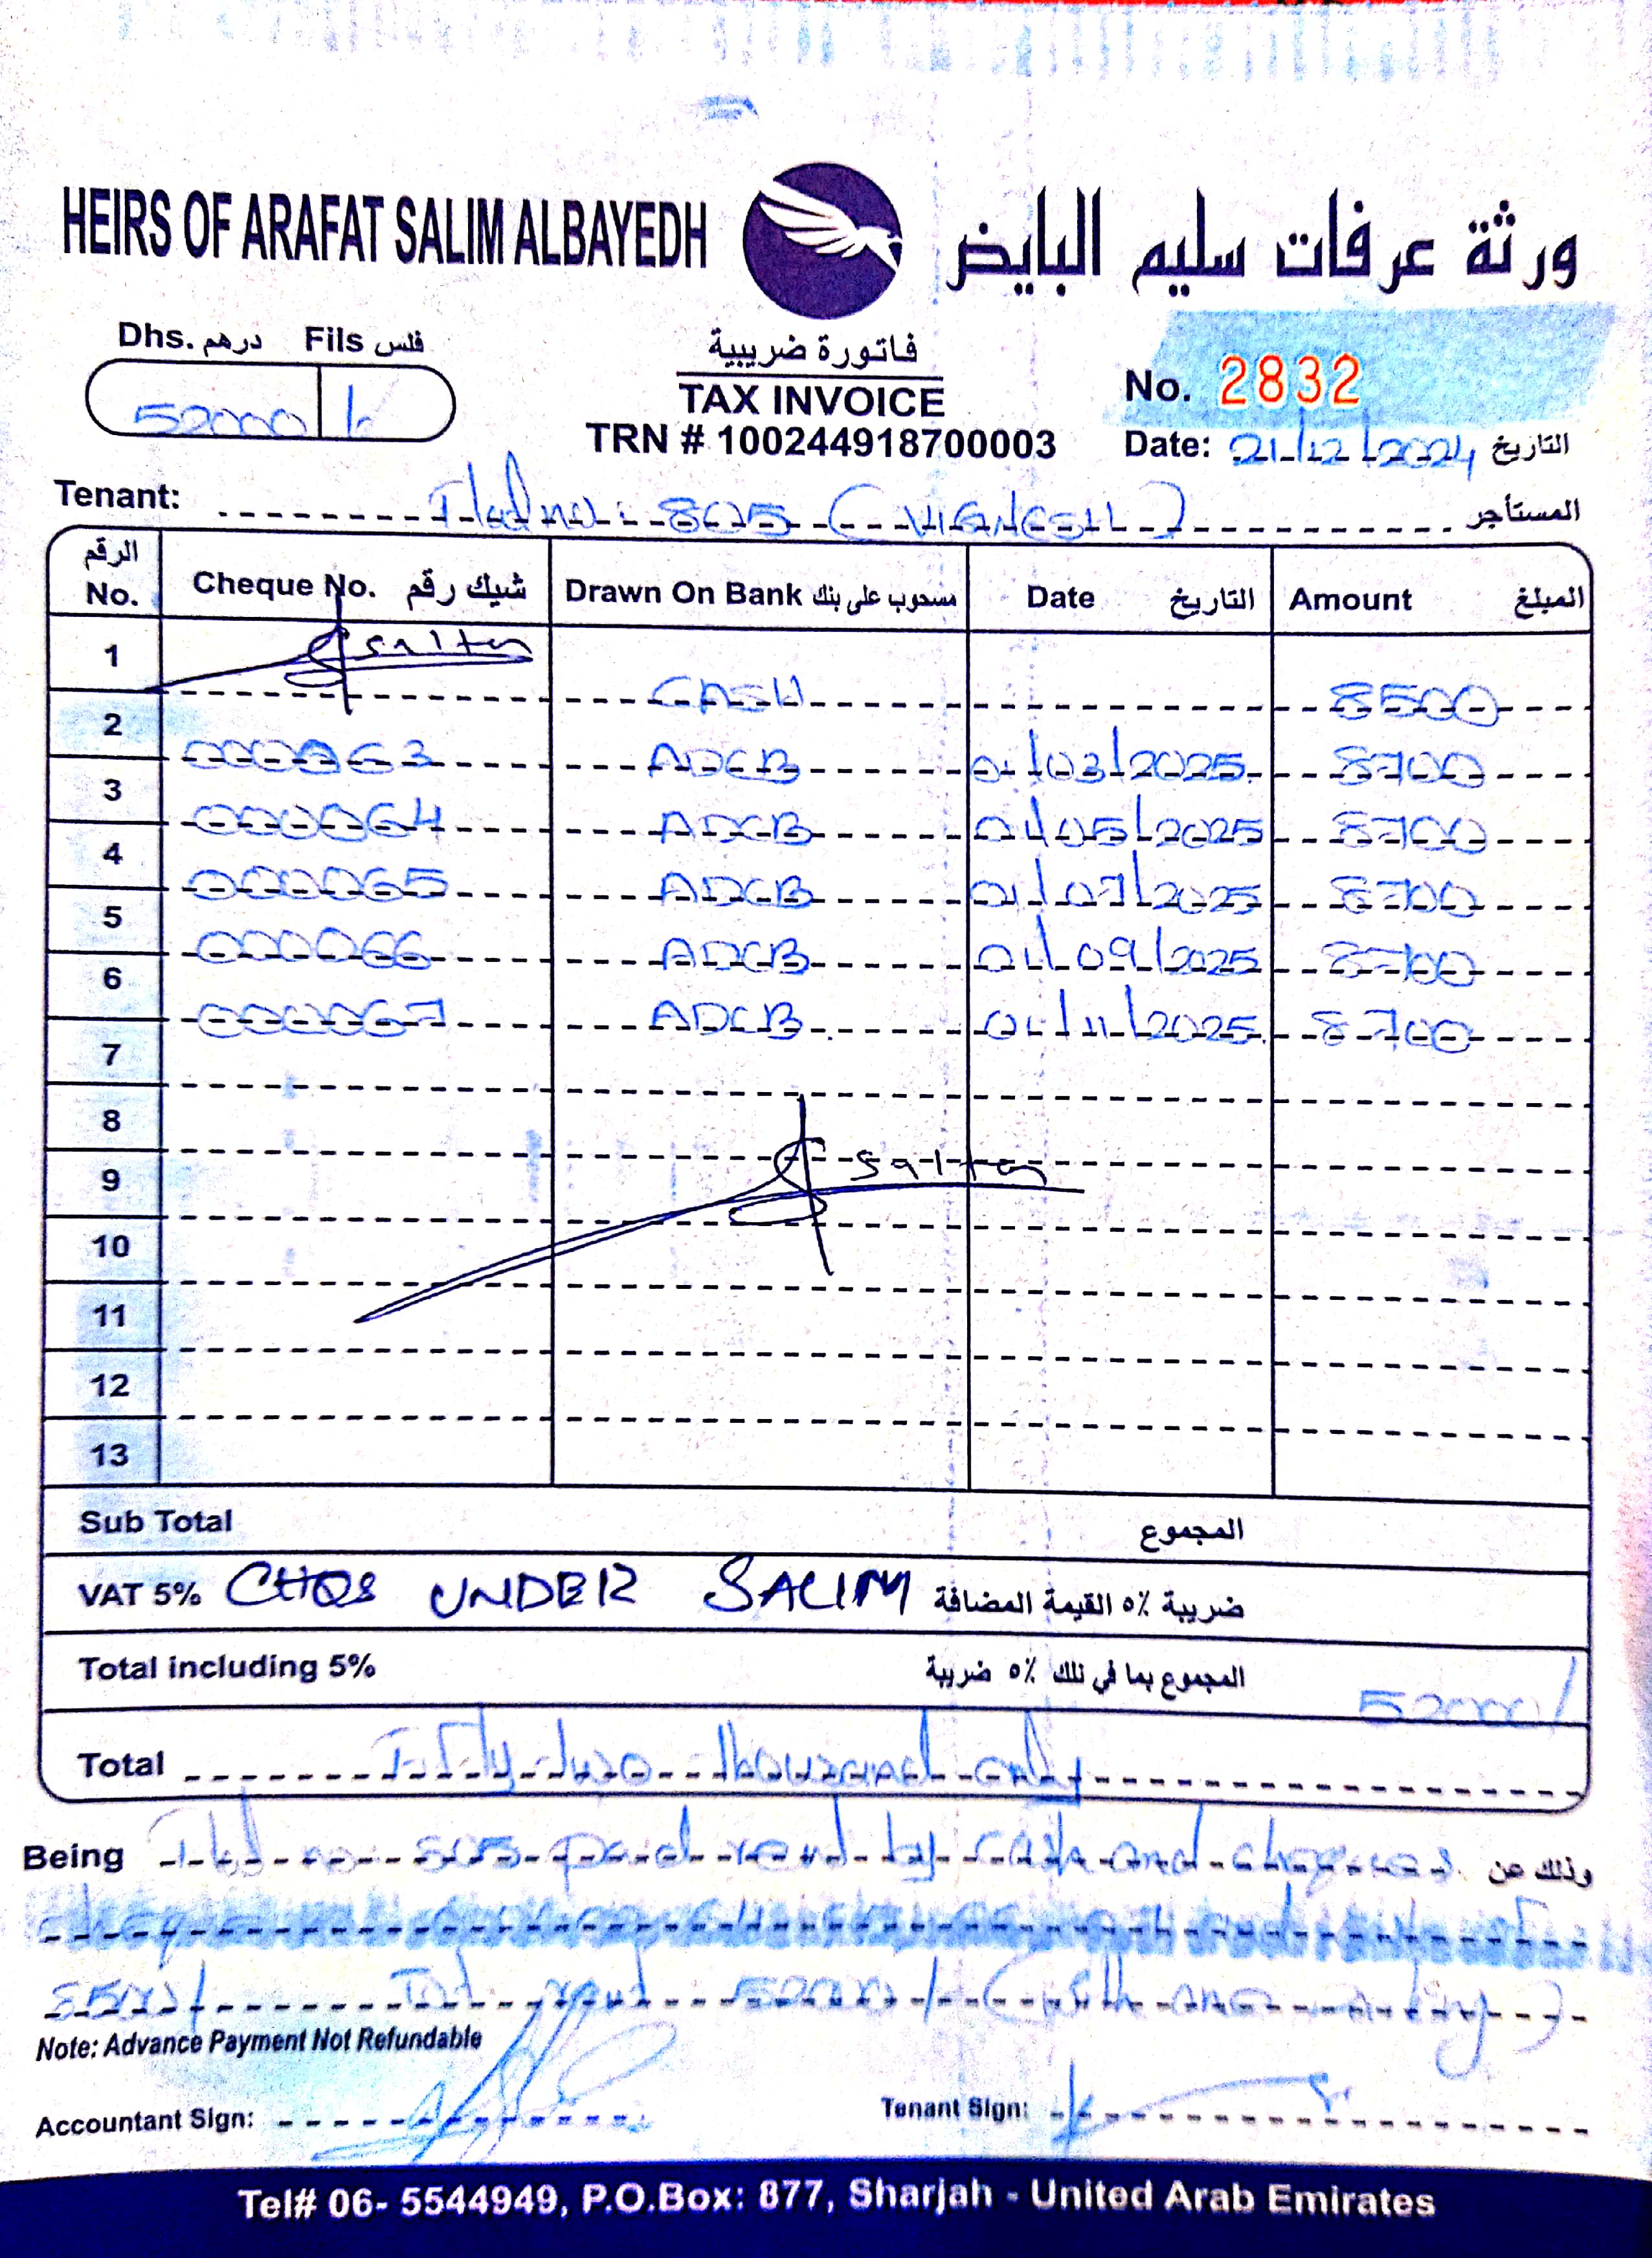 HEIRS OF ARAFAT SALIM ALBAYEDH
ورثة عرفات سليم البايض
Dhs. درهم Fils فلس
52000
فاتورة ضريبية
TAX INVOICE
TRN # 100244918700003
No. 2832
Date: 21/12/2024 التاريخ
Tenant: Flat no: 805 (VIGNESH) المستأجر
الرقم No. Cheque No. شيك رقم Drawn On Bank مسحوب على بنك Date التاريخ Amount المبلغ
1 CASH 8500
2 000063 ADCB 01/03/2025 8700
3 000064 ADCB 01/05/2025 8700
4 000065 ADCB 01/07/2025 8700
5 000066 ADCB 01/09/2025 8700
6 000067 ADCB 01/11/2025 8700
7
8
9
10
11
12
13
Sub Total المجموع
VAT 5% CHQS UNDER SALIM ضريبة ٥٪ القيمة المضافة
Total including 5% المجموع بما في ذلك ٥٪ ضريبة 52000/
Total Fifty two thousand only
Being Flat no 805 paid rent by cash and cheques وذلك عن
8500/ rent 52000/
Note: Advance Payment Not Refundable
Accountant Sign:
Tenant Sign:
Tel# 06- 5544949, P.O.Box: 877, Sharjah - United Arab Emirates